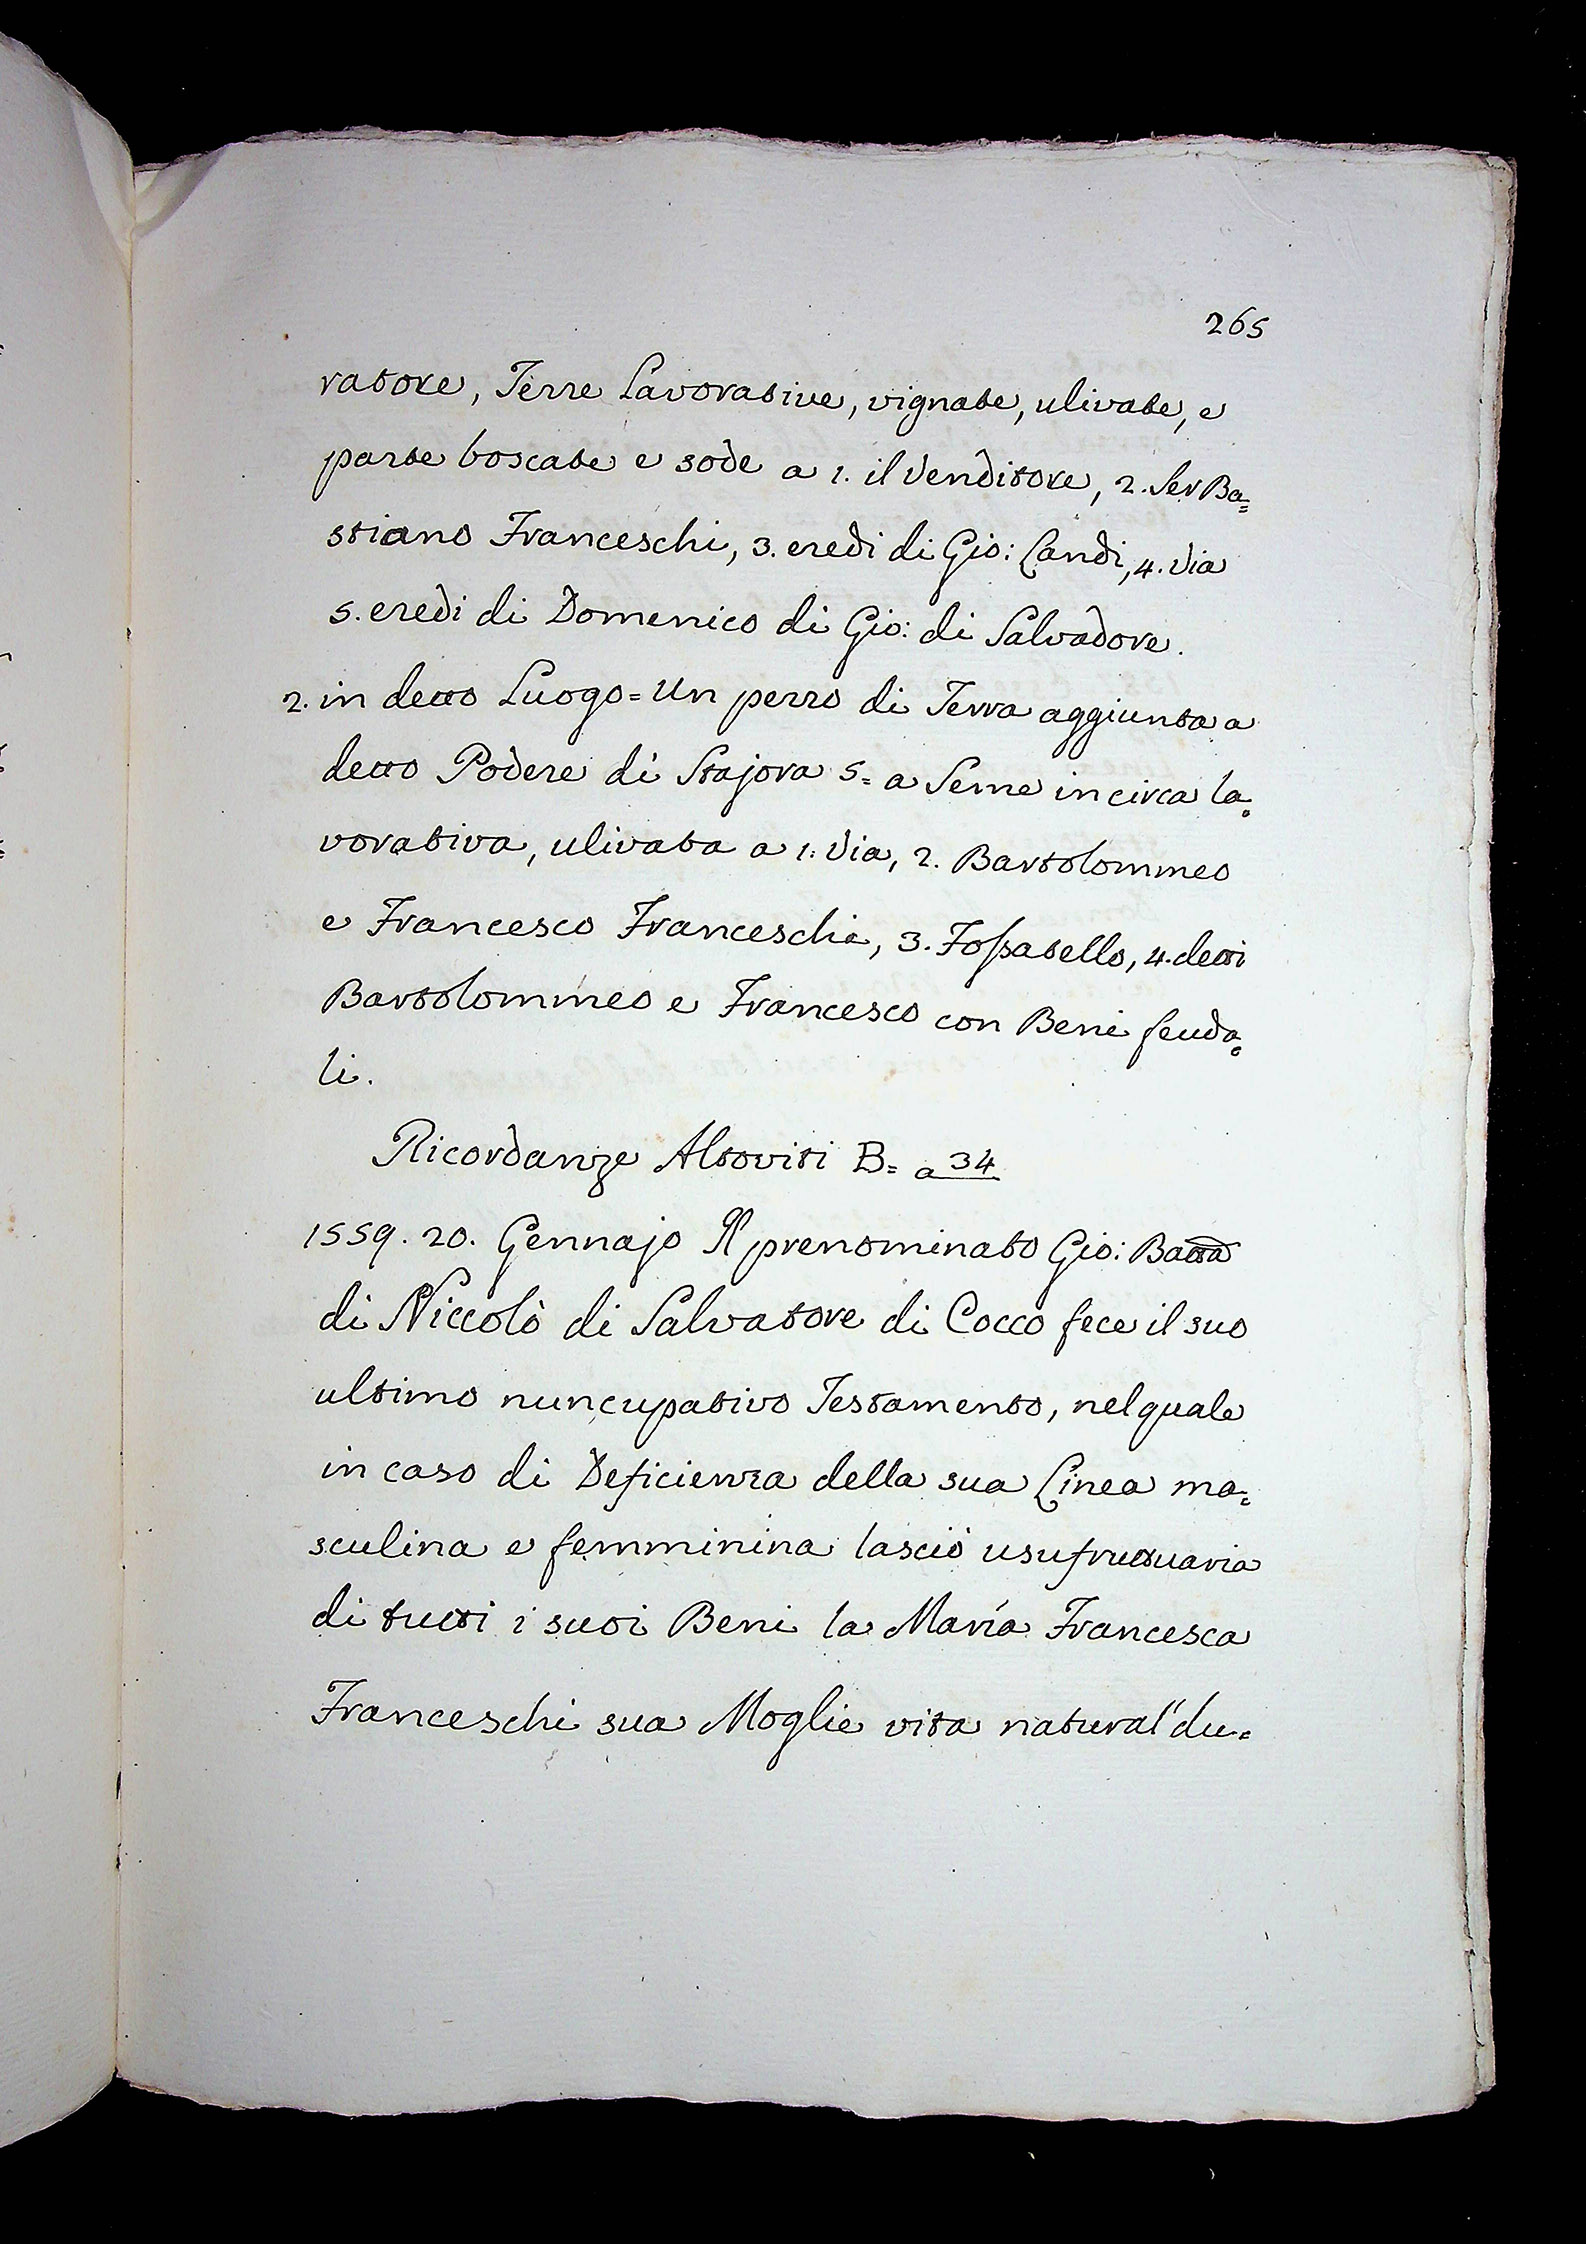 265
ratore, Terre Lavorative, vignate, ulivate, e
parte boscate e sode a 1. il Venditore, 2. Ser Ba=
stiano Franceschi, 3. eredi di Gio: Landi, 4. Via
5. eredi di Domenico di Gio: di Salvadore.
2. in detto Luogo = Un pezzo di Terra aggiunta a
detto Podere di Stajora 5= a Seme in circa la=
vorativa, ulivata a 1: Via, 2. Bartolommeo
e Francesco Franceschi, 3. Fossatello, 4. detti
Bartolommeo e Francesco con Beni feuda=
li.
Ricordanze Altoviti B= a 34
1559. 20. Gennajo Il prenominato Gio: Batta
di Niccolò di Salvatore di Cocco fece il suo
ultimo nuncupativo Testamento, nel quale
in caso di Deficienza della sua Linea ma=
sculina e femminina lasciò usufruttuaria
di tutti i suoi Beni la Maria Francesca
Franceschi sua Moglie vita natural' du=